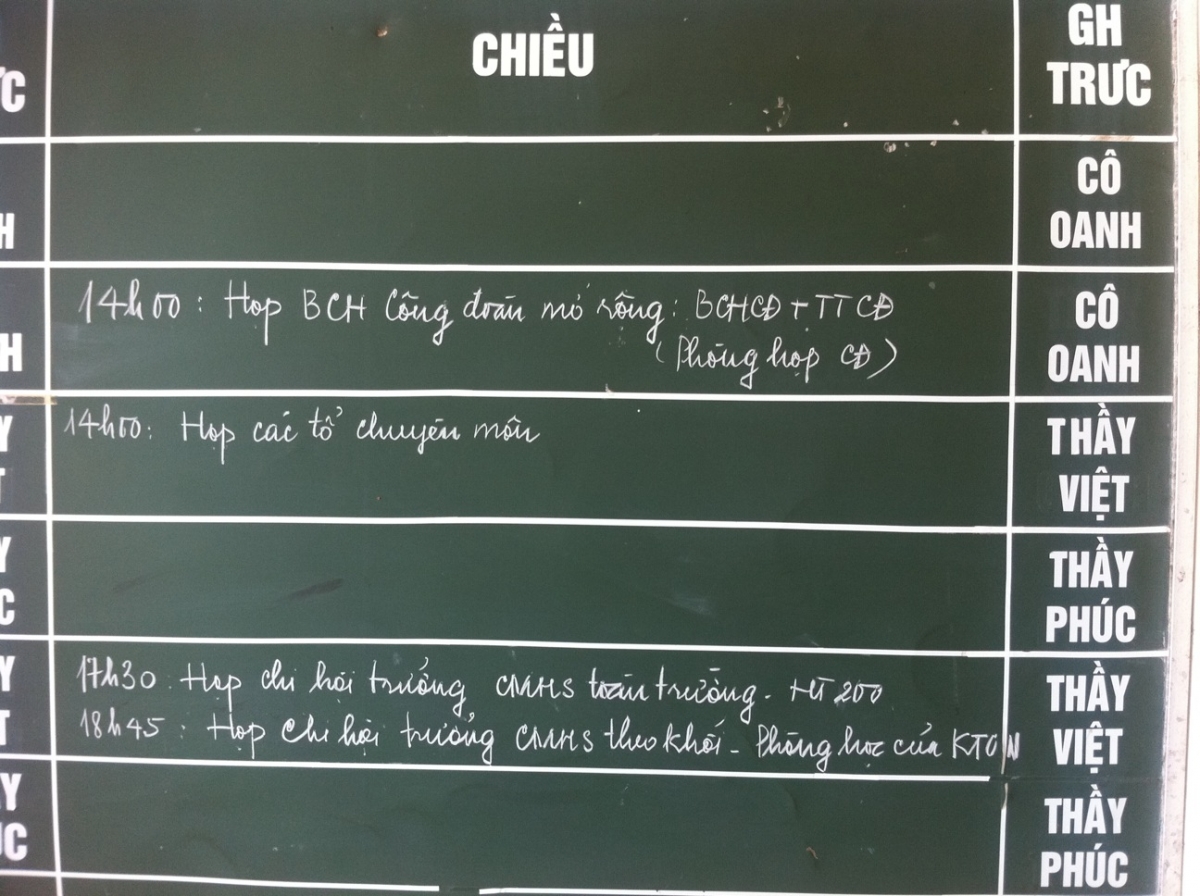 CHIỀU
GH
TRƯC
ƯC
CÔ
OANH
H
14h00: Họp BCH Công đoàn mở rộng: BCHCĐ + TTCĐ
(Phòng họp CĐ)
CÔ
OANH
H
14h00: Họp các tổ chuyên môn
THẦY
VIỆT
Y
T
THẦY
PHÚC
Y
C
17h30: Họp chi hội trưởng CMHS toàn trường - HT 200
18h45: Họp chi hội trưởng CMHS theo khối - Phòng học của
THẦY
VIỆT
Y
T
THẦY
PHÚC
ẦY
ÚC